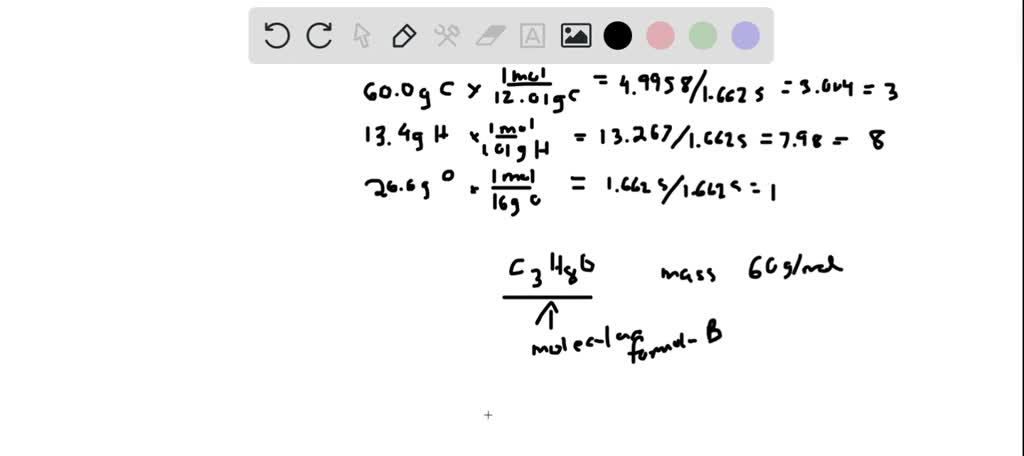 60.0g C × 1mol/12.01gC = 4.9958/1.6625 = 3.004 = 3
13.4g H × 1mol/1.01gH = 13.267/1.6625 = 7.98 = 8
26.6g O × 1mol/16g O = 1.6625/1.6625 = 1
C3H8O mass 60g/mol
molecular formula B